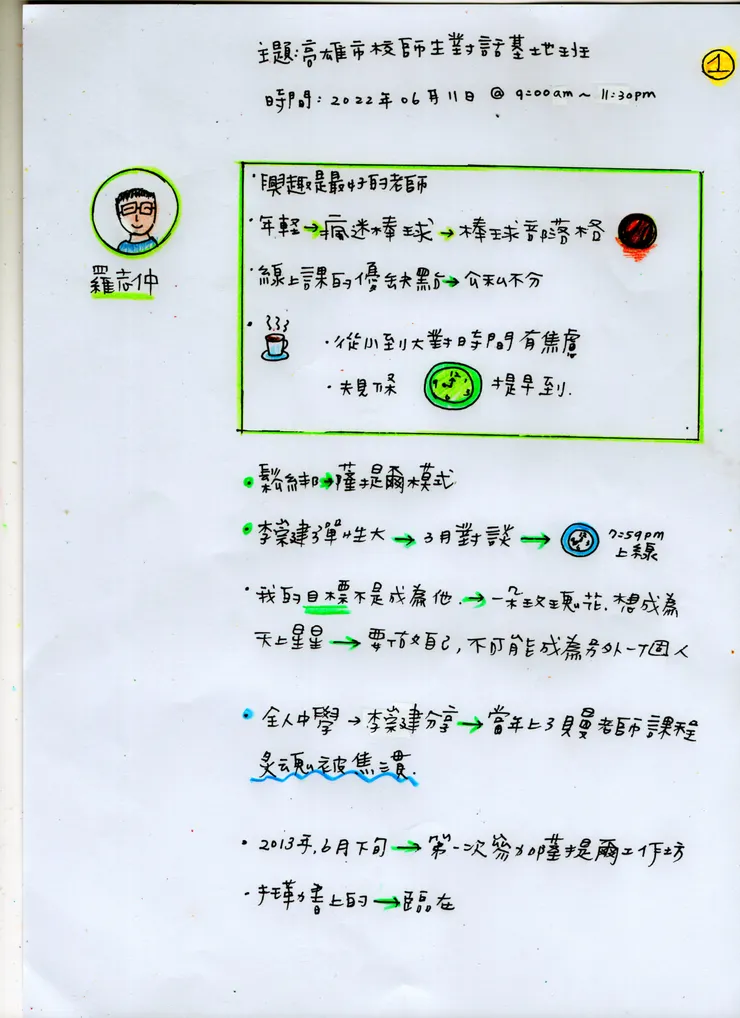 主題:高雄市校師生對話基地班
①
時間:2022年06月11日 @ 9:00am~11:30pm
羅志仲
·興趣是最好的老師
·年輕→瘋迷棒球→棒球部落格
·線上課的優缺點→公私不分
·從小到大對時間有焦慮
· 提早到.
·鬆綁→薩提爾模式
·李崇建彈性大→3月對談→ 7:59pm
上線
·我的目標不是成為他.→一朵玫瑰花.想成為
天上星星→要做自己,不可能成為另外一個人
·全人中學→李崇建分享→當年上了貝曼老師課程
靈魂被焦灌.
·2013年,6月下旬→第一次參加薩提爾工作坊
·托勒書上的→臨在